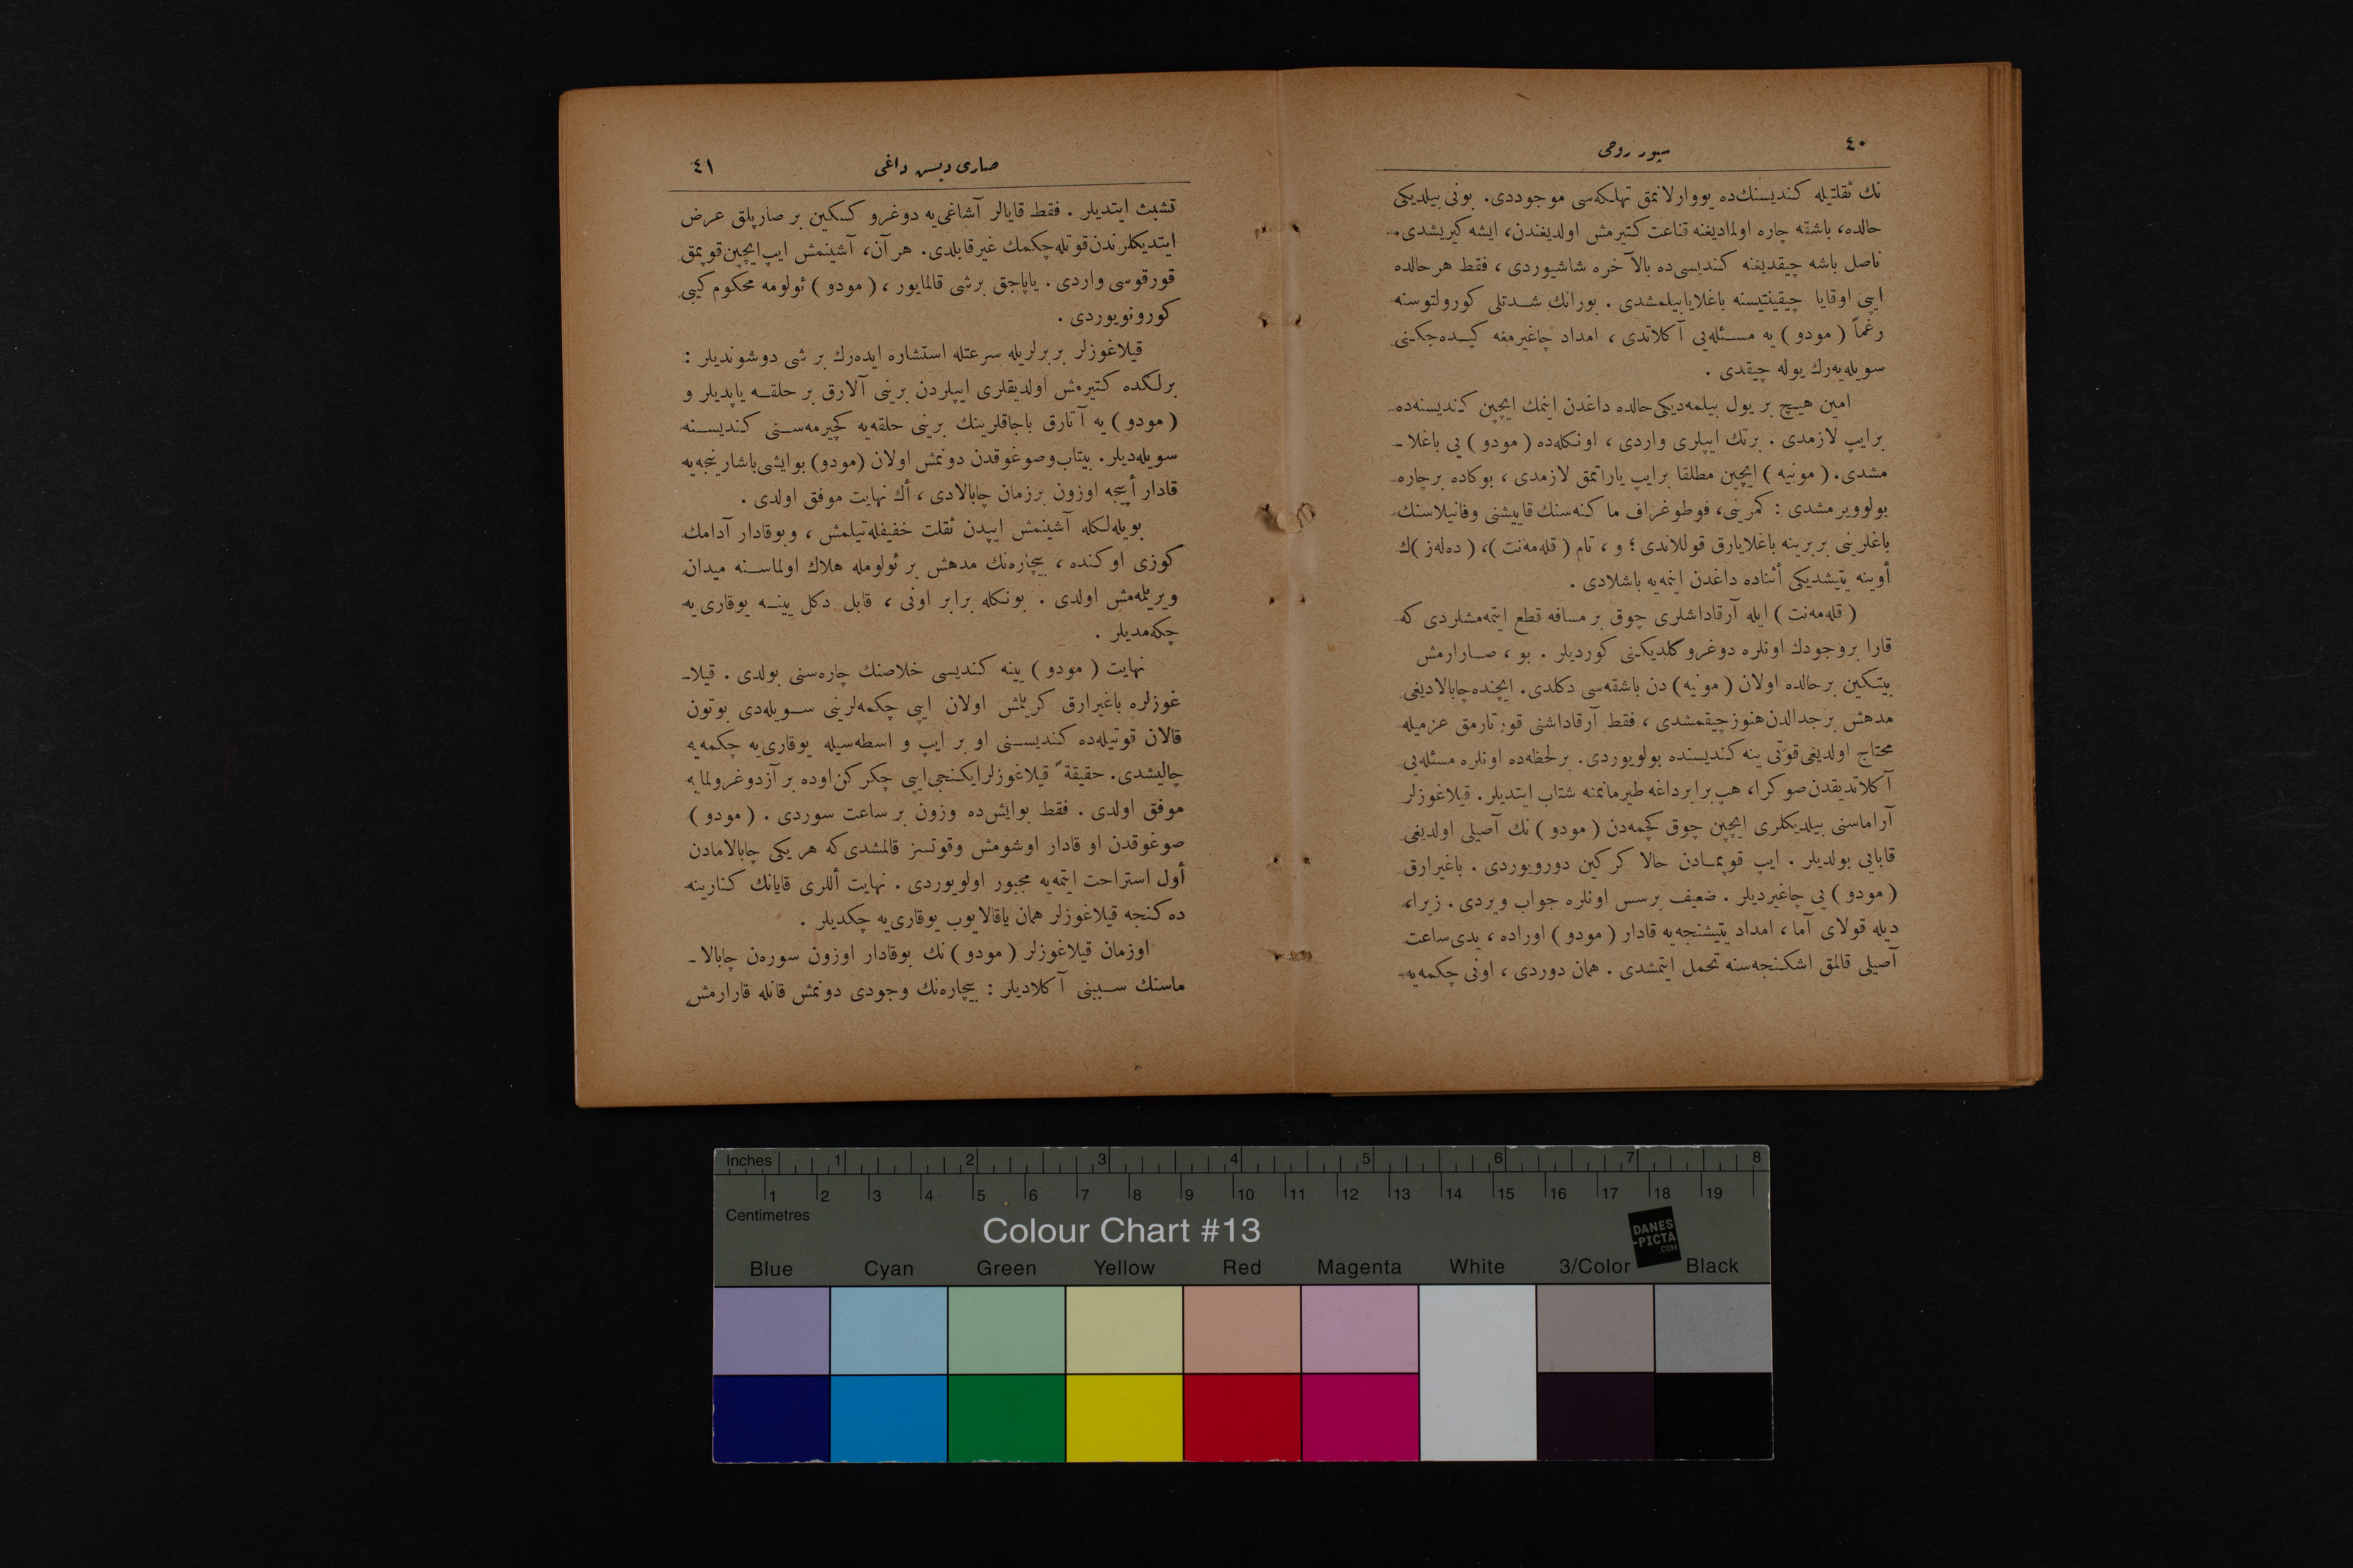 ٤٠
سپور روحی
نك ثقلتيله كنديسنك‌ده يووارلانمق تهلكه‌سی موجوددی. بونی بيلديكی
حالده، باشقه چاره اولماديغنه قناعت كتيرمش اولديغندن، ايشه كيريشدی.
ناصل باشه چيقديغنه كنديسی‌ده بالآخره شاشيوردی، فقط هر حالده
ايپی اوقايا چيقينتيسنه باغلايابيلمشدی. بورانك شدتلی كورولتوسنه
رغماً (مودو) يه مسئله‌يی آكلاتدی، امداد چاغيرمغه كيده‌جكنی
سويله‌يه‌رك يوله چيقدی.
امين هيچ بر يول بيلمه‌ديكی حالده داغدن اينمك ايچين كنديسنه‌ده
برايپ لازمدی. برتك ايپلری واردی، اونكله‌ده (مودو) يی باغلا-
مشدی. (مونيه) ايچين مطلقا برايپ ياراتمق لازمدی، بوكاده برچاره
بولوويرمشدی: كمرينی، فوطوغراف ماكنه‌سنك قاييشنی وفانيلاسنك
باغلرينی بربرينه باغلايارق قوللاندی؛ و، تام (قله‌مه‌نت)، (ده‌له‌ز)ك
أوينه يتيشديكی أثناده داغدن اينمه‌يه باشلادی.
(قله‌مه‌نت) ايله آرقاداشلری چوق بر مسافه قطع ايتمه‌مشلردی كه
قارا بروجودك اونلره دوغرو گلديكنی كورديلر. بو، صارارمش
بيتكين برحالده اولان (مونيه) دن باشقه‌سی دكلدی. ايچنده چابالاديغی
مدهش برجدالدن هنوز چيقمشدی، فقط آرقاداشنی قورتارمق عزميله
محتاج اولديغی قوتی ينه كنديسنده بولويوردی. برلحظه‌ده اونلره مسئله‌يی
آكلاتديقدن صوكرا، هپ برابر داغه طيرمانمنه شتاب ايتديلر. قيلاغوزلر
آراماسنی بيلديكلری ايچين چوق كچمه‌دن (مودو) نك آصيلی اولديغی
قايايی بولديلر. ايپ قوپمادن حالا كركين دورويوردی. باغيرارق
(مودو) يی چاغيرديلر. ضعيف برسس اونلره جواب ويردی. زيرا،
ديله قولای آما، امداد يتيشنجه‌يه قادار (مودو) اوراده، يدی ساعت
آصيلی قالمق اشكنجه‌سنه تحمل ايتمشدی. همان دوردی، اونی چكمه‌يه
صاری ديسی داغی
٤١
تشبث ايتديلر. فقط قايالر آشاغی‌يه دوغرو كسكين بر صارپلق عرض
ايتديكلرندن قوتله چكمك غيرقابلدی. هر آن، آشينمش ايپ ايچين قوپمق
قورقوسی واردی. ياپاجق برشی قالمايور، (مودو) ئولومه محكوم كيبی
كورونويوردی.
قيلاغوزلر بربرلريله سرعتله استشاره ايده‌رك بر شی دوشونديلر:
برلكده كتيرمش اولديقلری ايپلردن برينی آلارق بر حلقه ياپديلر و
(مودو) يه آتارق باجاقلرينك برينی حلقه‌يه كچيرمه‌سنی كنديسنه
سويله‌ديلر. بيتاب وصوغوقدن دونمش اولان (مودو) بوايشی باشارنجه‌يه
قادار أپيجه اوزون برزمان چابالادی، أك نهايت موفق اولدی.
بويله‌لكله آشينمش ايپدن ثقلت خفيفله‌تيلمش، وبوقادار آدامك
كوزی اوكنده، بيچاره‌نك مدهش بر ئولومله هلاك اولماسنه ميدان
ويريلمه‌مش اولدی. بونكله برابر اونی، قابل دكل يينه يوقاری‌يه
چكه‌مديلر.
نهايت (مودو) يينه كنديسی خلاصنك چاره‌سنی بولدی. قيلا-
غوزلره باغيرارق كريلمش اولان ايپی چكمه‌لرينی سويله‌دی بوتون
قالان قوتيله‌ده كنديسنی او بر ايپ و اسطه‌سيله يوقاری‌يه چكمه‌يه
چاليشدی. حقيقةً قيلاغوزلر ايكنجی ايپی چكركن اوده بر آز دوغرولمايه
موفق اولدی. فقط بوايش‌ده وزون بر ساعت سوردی. (مودو)
صوغوقدن او قادار اوشومش وقوتسز قالمشدی كه هر يكی چابالامادن
أول استراحت ايتمه‌يه مجبور اولويوردی. نهايت أللری قايانك كنارينه
ده‌كنجه قيلاغوزلر همان ياقالايوب يوقاری‌يه چكديلر.
اوزمان قيلاغوزلر (مودو) نك بوقادار اوزون سوره‌ن چابالا-
ماسنك سببنی آكلاديلر: بيچاره‌نك وجودی دونمش قانله قارارمش
Inches 1 2 3 4 5 6 7 8
1 2 3 4 5 6 7 8 9 10 11 12 13 14 15 16 17 18 19
Centimetres
Colour Chart #13
DANES
-PICTA
.COM
Blue Cyan Green Yellow Red Magenta White 3/Color Black